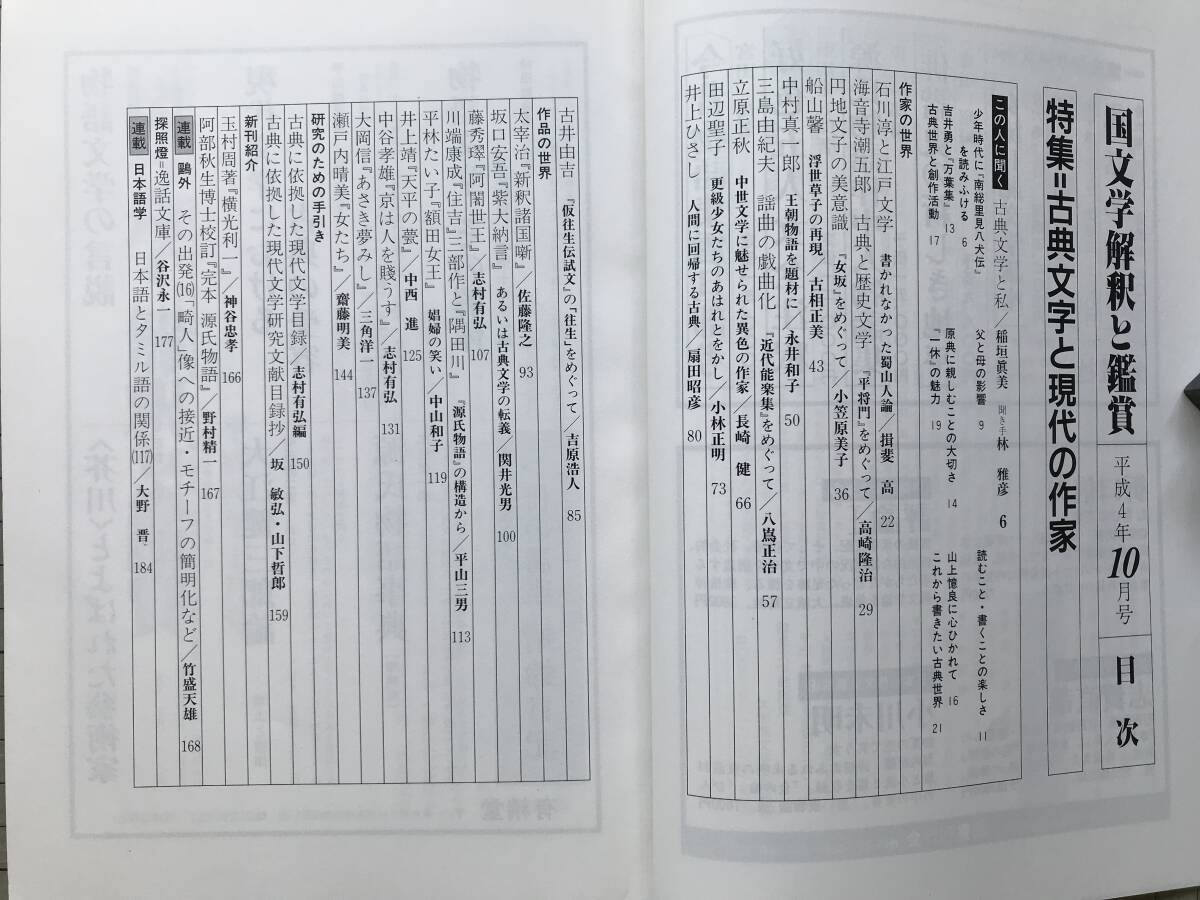 国文学解釈と鑑賞 平成4年10月号 目次
特集=古典文学と現代の作家
この人に聞く 古典文学と私/稲垣眞美 聞き手 林 雅彦 6
少年時代に「南総里見八犬伝」を読みふける 6
父と母の影響 9
読むこと・書くことの楽しさ 11
吉井勇と「万葉集」 13
原典に親しむことの大切さ 14
山上憶良に心ひかれて 16
古典世界と創作活動 17
「一休」の魅力 19
これから書きたい古典世界 21
作家の世界
石川淳と江戸文学 書かれなかった蜀山人論/揖斐 高 22
海音寺潮五郎 古典と歴史文学 『平将門』をめぐって/高崎隆治 29
円地文子の美意識 『女坂』をめぐって/小笠原美子 36
船山馨 浮世草子の再現/古相正美 43
中村真一郎 王朝物語を題材に/永井和子 50
三島由紀夫 謡曲の戯曲化 『近代能楽集』をめぐって/八嶌正治 57
立原正秋 中世文学に魅せられた異色の作家/長崎 健 66
田辺聖子 更級少女たちのあはれとをかし/小林正明 73
井上ひさし 人間に回帰する古典/扇田昭彦 80
古井由吉 『仮往生伝試文』の「往生」をめぐって/吉原浩人 85
作品の世界
太宰治『新釈諸国噺』/佐藤隆之 93
坂口安吾『紫大納言』 あるいは古典文学の転義/関井光男 100
藤秀璻『阿闍世王』/志村有弘 107
川端康成『住吉』三部作と『隅田川』 『源氏物語』の構造から/平山三男 113
平林たい子『額田女王』 娼婦の笑い/中山和子 119
井上靖『天平の甍』/中西 進 125
中谷孝雄『京は人を賤うす』/志村有弘 131
大岡信『あさき夢みし』/三角洋一 137
瀬戸内晴美『女たち』/齋藤明美 144
研究のための手引き
古典に依拠した現代文学目録/志村有弘編 150
古典に依拠した現代文学研究文献目録抄/坂 敏弘・山下哲郎 159
新刊紹介
玉村周著『横光利一』/神谷忠孝 166
阿部秋生博士校訂『完本 源氏物語』/野村精一 167
連載 鷗外 その出発(16)「畸人」像への接近・モチーフの簡明化など/竹盛天雄 168
探照燈=逸話文庫/谷沢永一 177
連載 日本語学 日本語とタミル語の関係(117)/大野 晋 184
有精堂